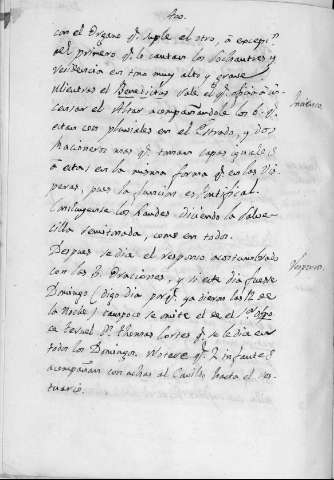 con el Organo qᵉ suple el otro, á excepⁿ
del primero qᵉ lo cantan los Sochantres y
residencia en tono muy alto y grave
Mientras el Benedictus sale el qᵉ oficio á in-
censar el Altar acompañandole los 6. qᵉ
estan con pluviales en el Estrado, y dos
Racioneros mas qᵉ toman capas iguales
á estos en la misma forma qᵉ en las Vis-
peras, pues la funcion es Pontifical.
Concluyense los Laudes diciendo la
cilla semitonada, como en todos.
Despues se dia el responso acostumbrado
con las 3. Oraciones, y si este dia fuese
Domingo (digo dia porqᵉ ya dieron las 12 de
la Noche) tampoco se omite el de el Sʳ Obpo
de Teruel Dⁿ Thomas Cortes qᵉ se le dia en
todos los Domingos. Notese qᵉ 2 infantes
acompañan con achas al Cavildo hasta el ves-
tuario.
Responso.